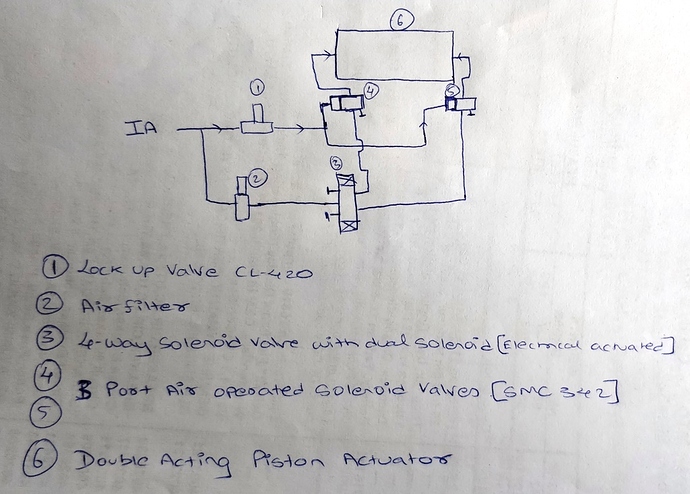 6
1
4
5
IA
3
2
1 Lock up Valve CL-420
2 Air filter
3 4-way Solenoid Valve with dual Solenoid [Electrical actuated]
4
3 Port Air operated Solenoid Valves [SMC 342]
5
6 Double Acting Piston Actuator